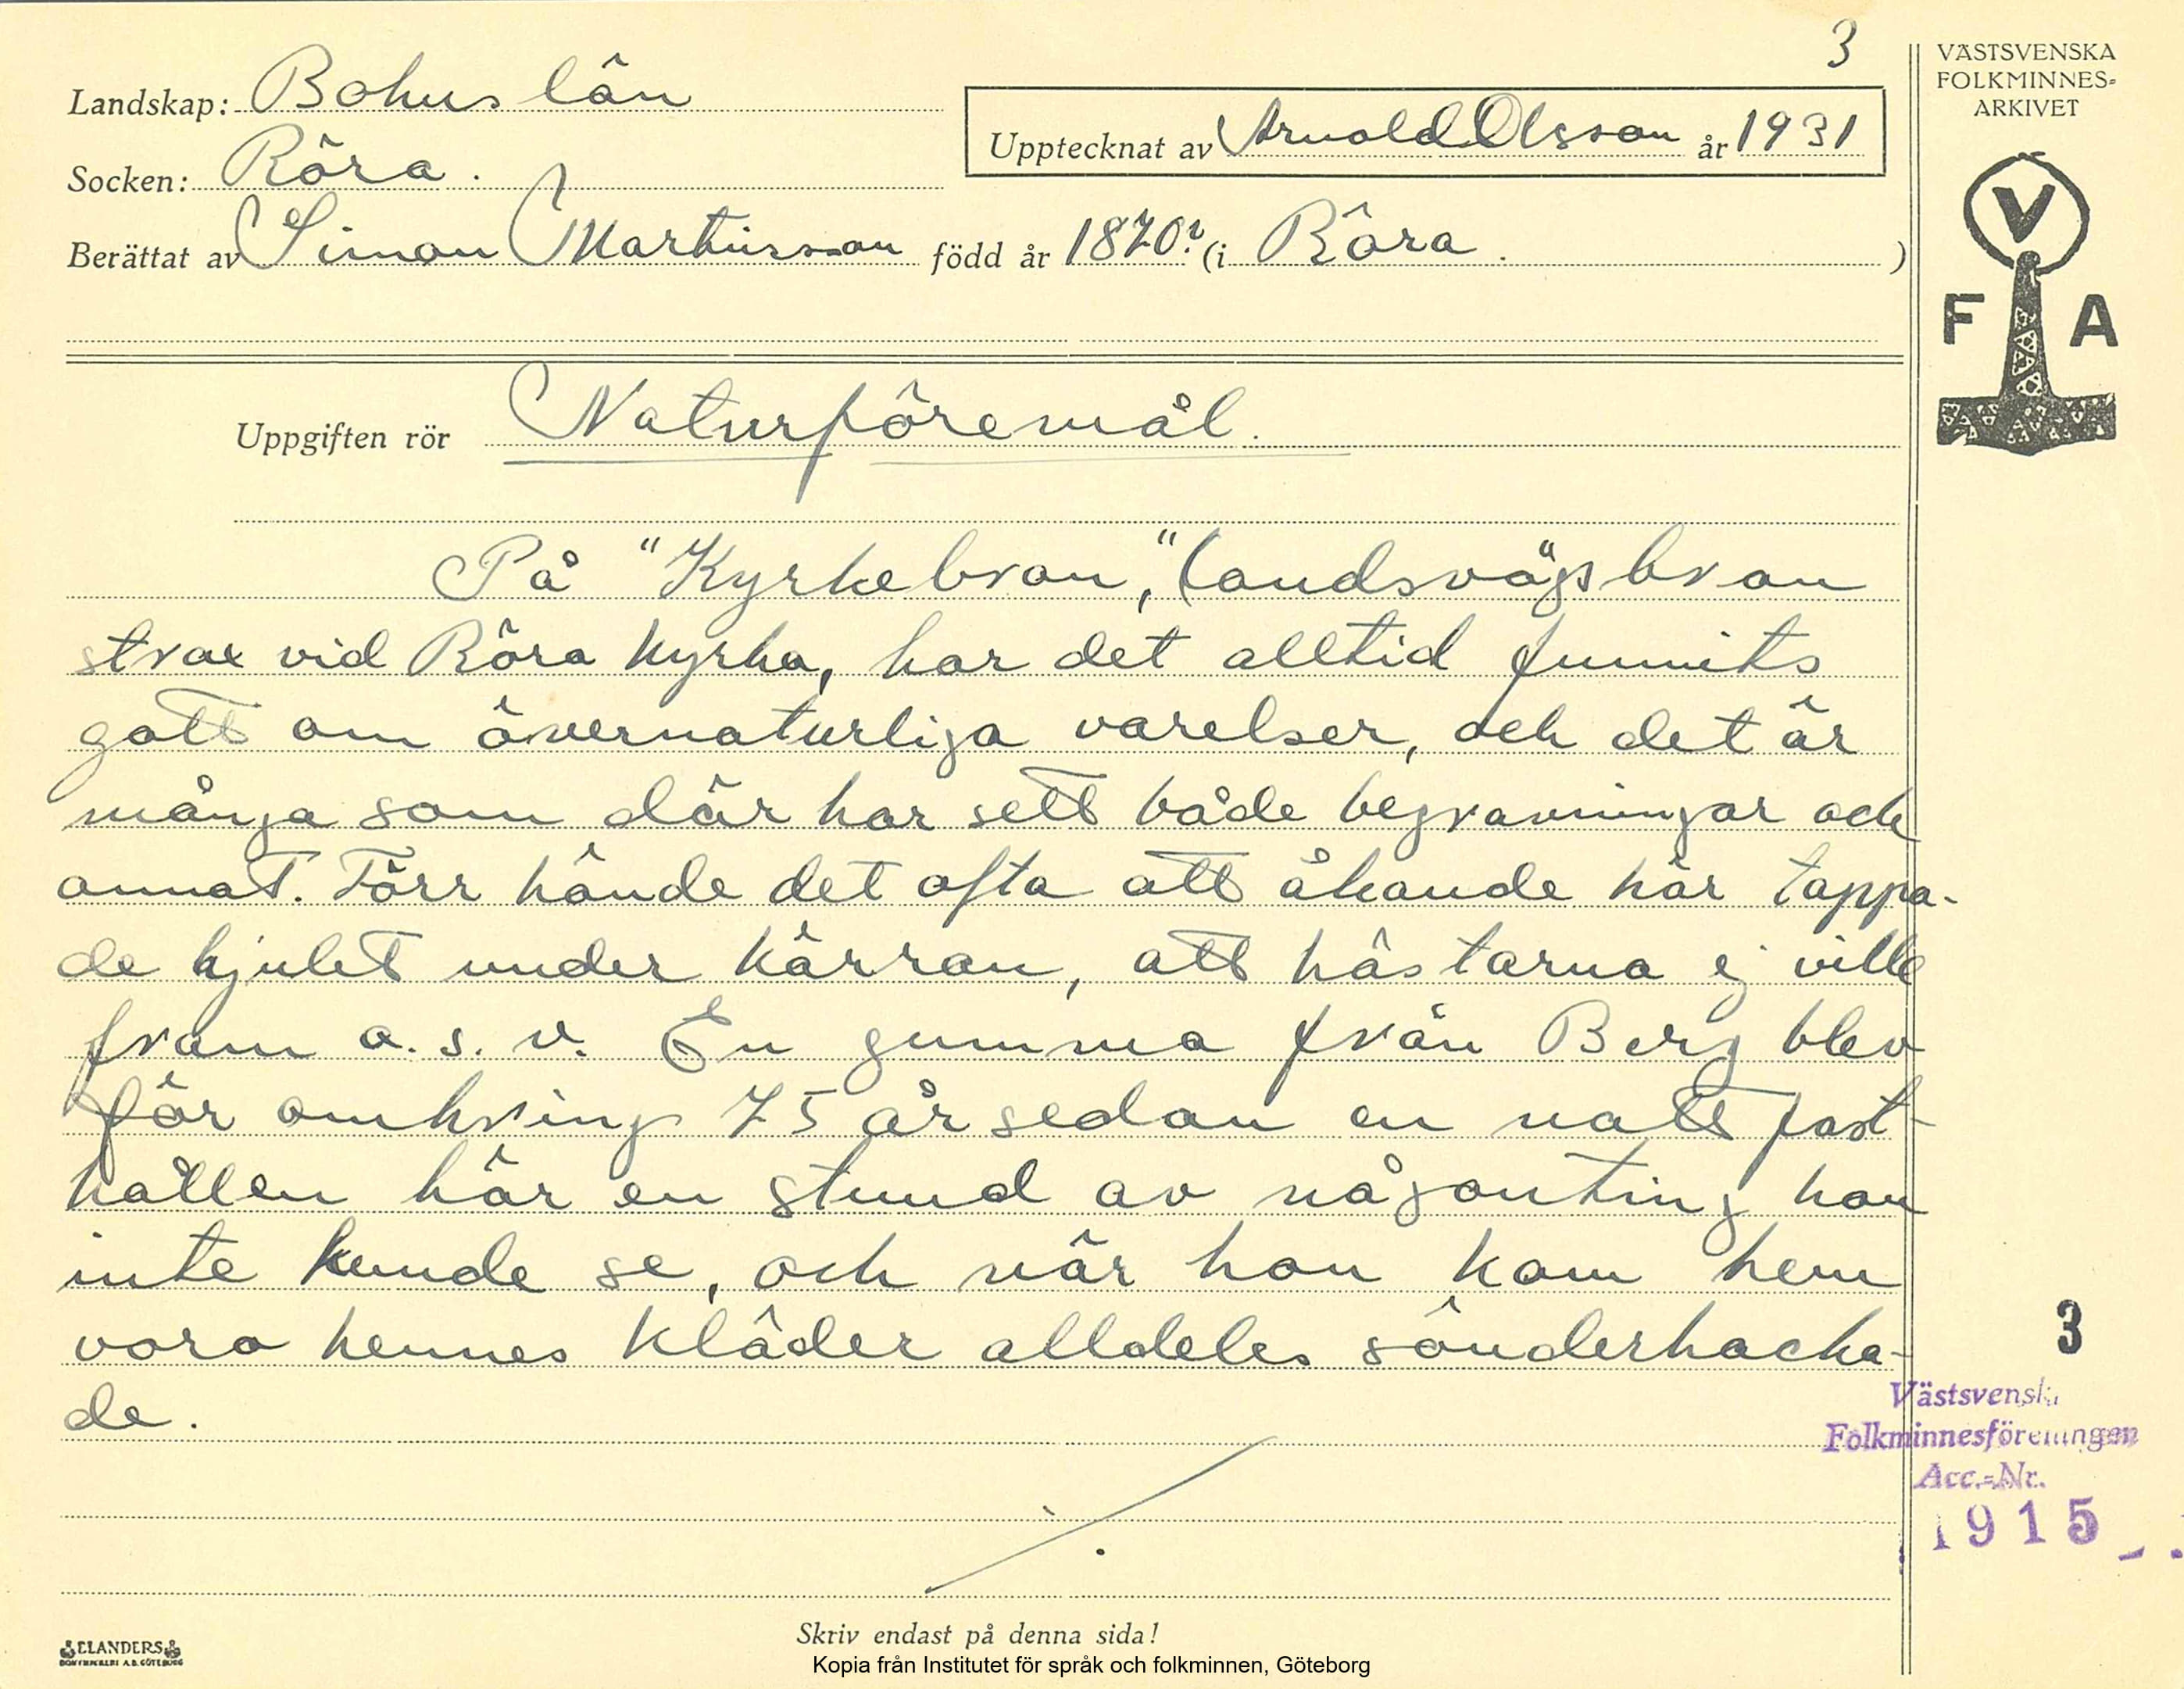 3
VÄSTSVENSKA
FOLKMINNES-
ARKIVET
Landskap: Bohuslän
Upptecknat av Arnold Olsson år 1931
Socken: Röra.
Berättat av Simon Martinsson född år 1870? (i Röra.)
V
F A
Uppgiften rör Naturföremål.
På "Kyrkebron," landsvägsbron
strax vid Röra kyrka, har det alltid funnits
gott om övernaturliga varelser, och det är
många som där har sett både begravningar och
annat. Förr hände det ofta att åkande här tappa-
de hjulet under kärran, att hästarna ej ville
fram o. s. v. En gumma från Berg blev
för omkring 75 år sedan en natt fast-
hållen här en stund av någonting hon
inte kunde se, och när hon kom hem
voro hennes kläder alldeles sönderhacka-
de.
3
Västsvenska
Folkminnesföreningen
Acc.-Nr.
1915
Skriv endast på denna sida!
ELANDERS
BOKTRYCKERI A.B. GÖTEBORG
Kopia från Institutet för språk och folkminnen, Göteborg